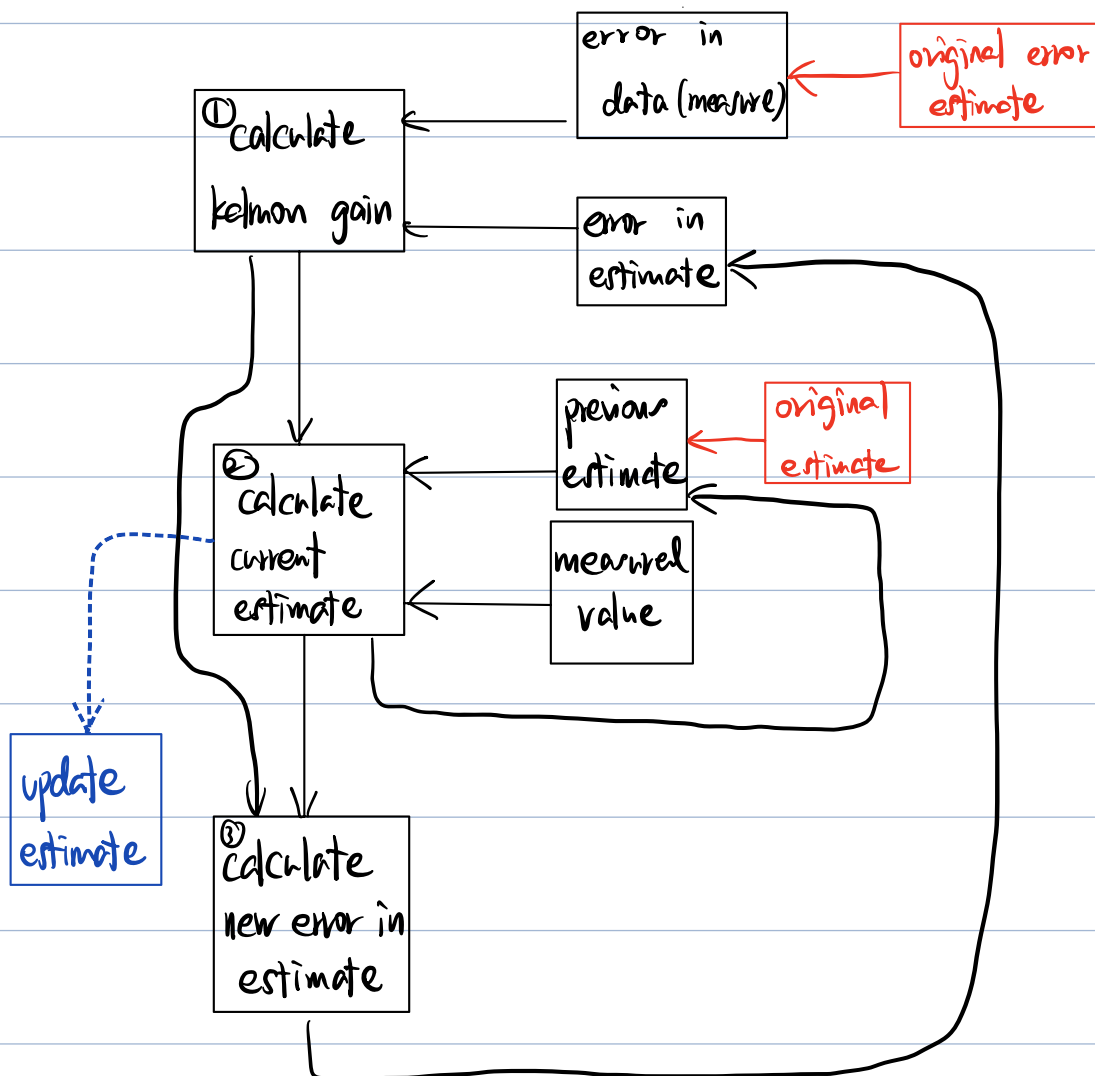 error in
data (measure)
original error
estimate
①
calculate
kalmon gain
error in
estimate
previous
estimate
original
estimate
②
calculate
current
estimate
measured
value
update
estimate
③
calculate
new error in
estimate